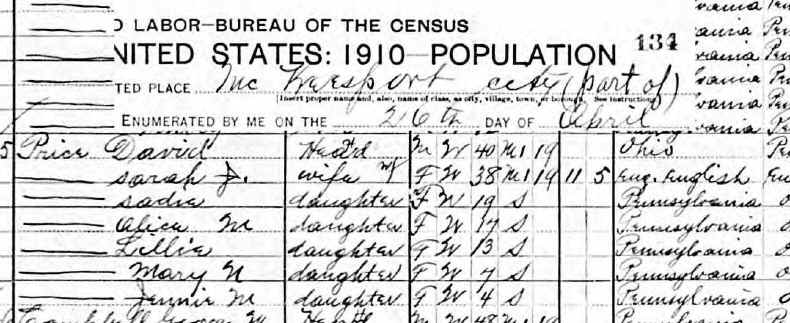 D LABOR—BUREAU OF THE CENSUS
NITED STATES: 1910—POPULATION 134
TED PLACE Mc Keesport city (part of)
[Insert proper name and, also, name of class, as city, village, town, or borough. See instructions.]
ENUMERATED BY ME ON THE 26th DAY OF April
5 Price David Head M W 40 M1 19 Ohio
Sarah J. wife F W 38 M1 19 11 5 Eng. English
Sadie daughter F W 19 S Pennsylvania
Alice M daughter F W 17 S Pennsylvania
Lillie daughter F W 13 S Pennsylvania
Mary N daughter F W 7 S Pennsylvania
Jennie M daughter F W 4 S Pennsylvania